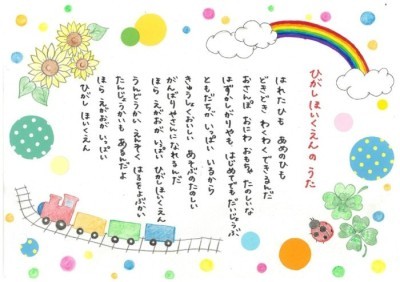 ひがしほいくえんの うた
はれたひも あめのひも
どきどき わくわくできるんだ
おさんぽ おにわ おもちゃ たのしいな
はずかしがりやも はじめてでも だいじょうぶ
ともだちが いっぱい いるから
きゅうしょくおいしい あそぶのたのしい
がんばりやさんになれるんだ
ほら えがおが いっぱい ひがしほいくえん
うんどうかい えんそく はるをよぶかい
たんじょうかいも あるんだよ
ほら えがおが いっぱい
ひがし ほいくえん